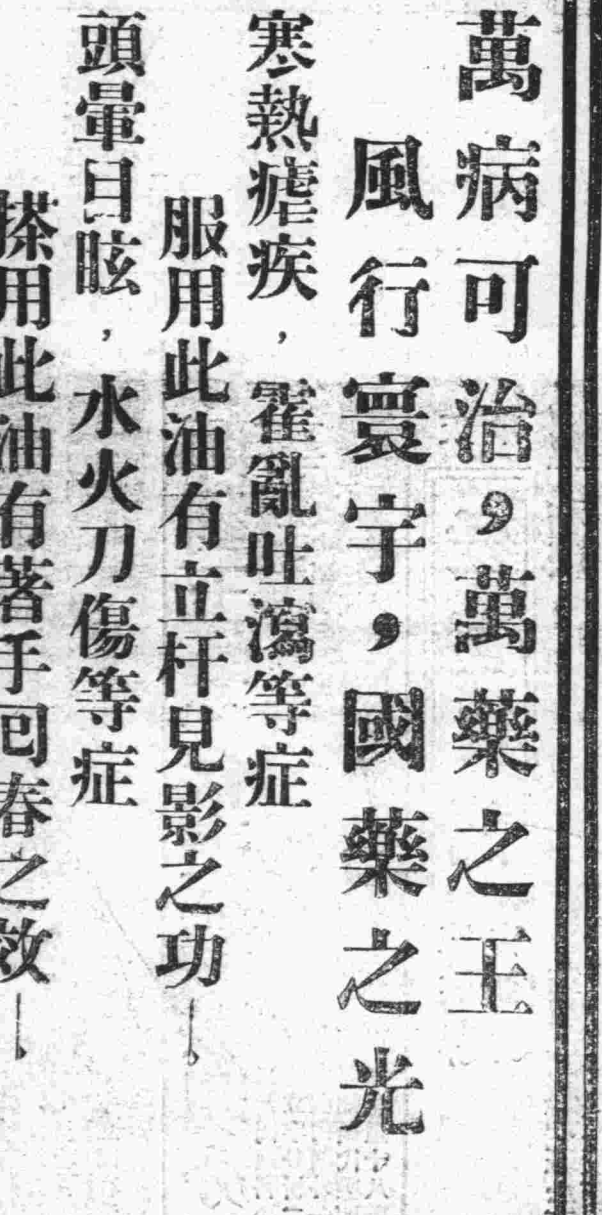 萬病可治，萬藥之王
風行寰宇，國藥之光
寒熱瘧疾，霍亂吐瀉等症
服用此油有立杆見影之功！
頭暈目眩，水火刀傷等症
搽用此油有著手回春之效！